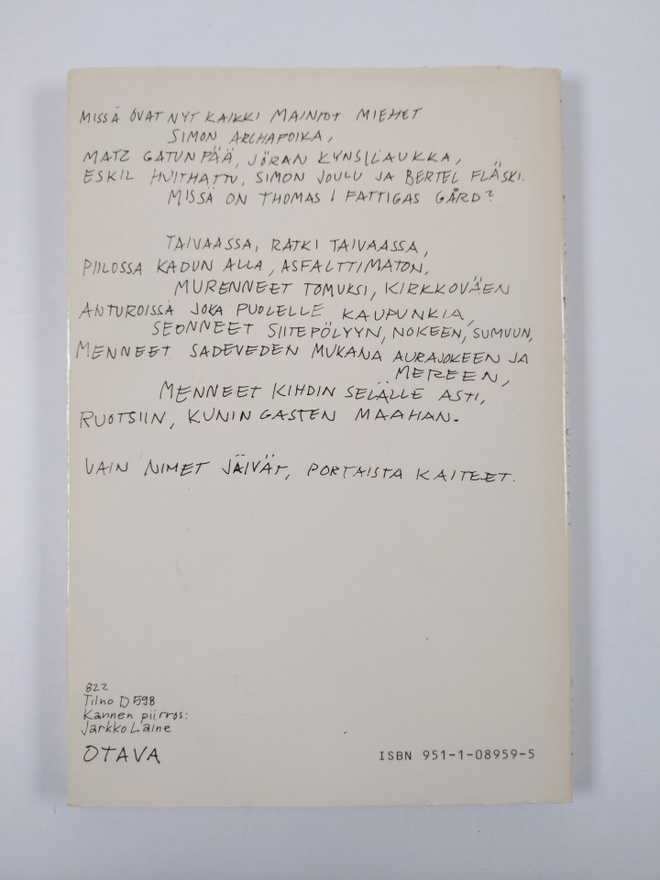 MISSÄ OVAT NYT KAIKKI MAINIOT MIEHET
SIMON ARCHAPOIKA,
MATZ GATUN PÄÄ, JÖRAN KYNSILAUKKA,
ESKIL HVITHATTU, SIMON JOULU JA BERTEL FLÄSKI.
MISSÄ ON THOMAS I FATTIGAS GÅRD?
TAIVAASSA, RATKI TAIVAASSA,
PIILOSSA KADUN ALLA, ASFALTTIMATON,
MURENNEET TOMUKSI, KIRKKOVÄEN
ANTUROISSA JOKA PUOLELLE KAUPUNKIA,
SEONNEET SIITEPÖLYYN, NOKEEN, SUMUUN,
MENNEET SADEVEDEN MUKANA AURAJOKEEN JA
MEREEN,
MENNEET KIHDIN SELÄLLE ASTI,
RUOTSIIN, KUNINGASTEN MAAHAN.
VAIN NIMET JÄIVÄT, PORTAISTA KAITEET.
822
Tilno D 598
Kannen piirros:
Jarkko Laine
OTAVA
ISBN 951-1-08959-5